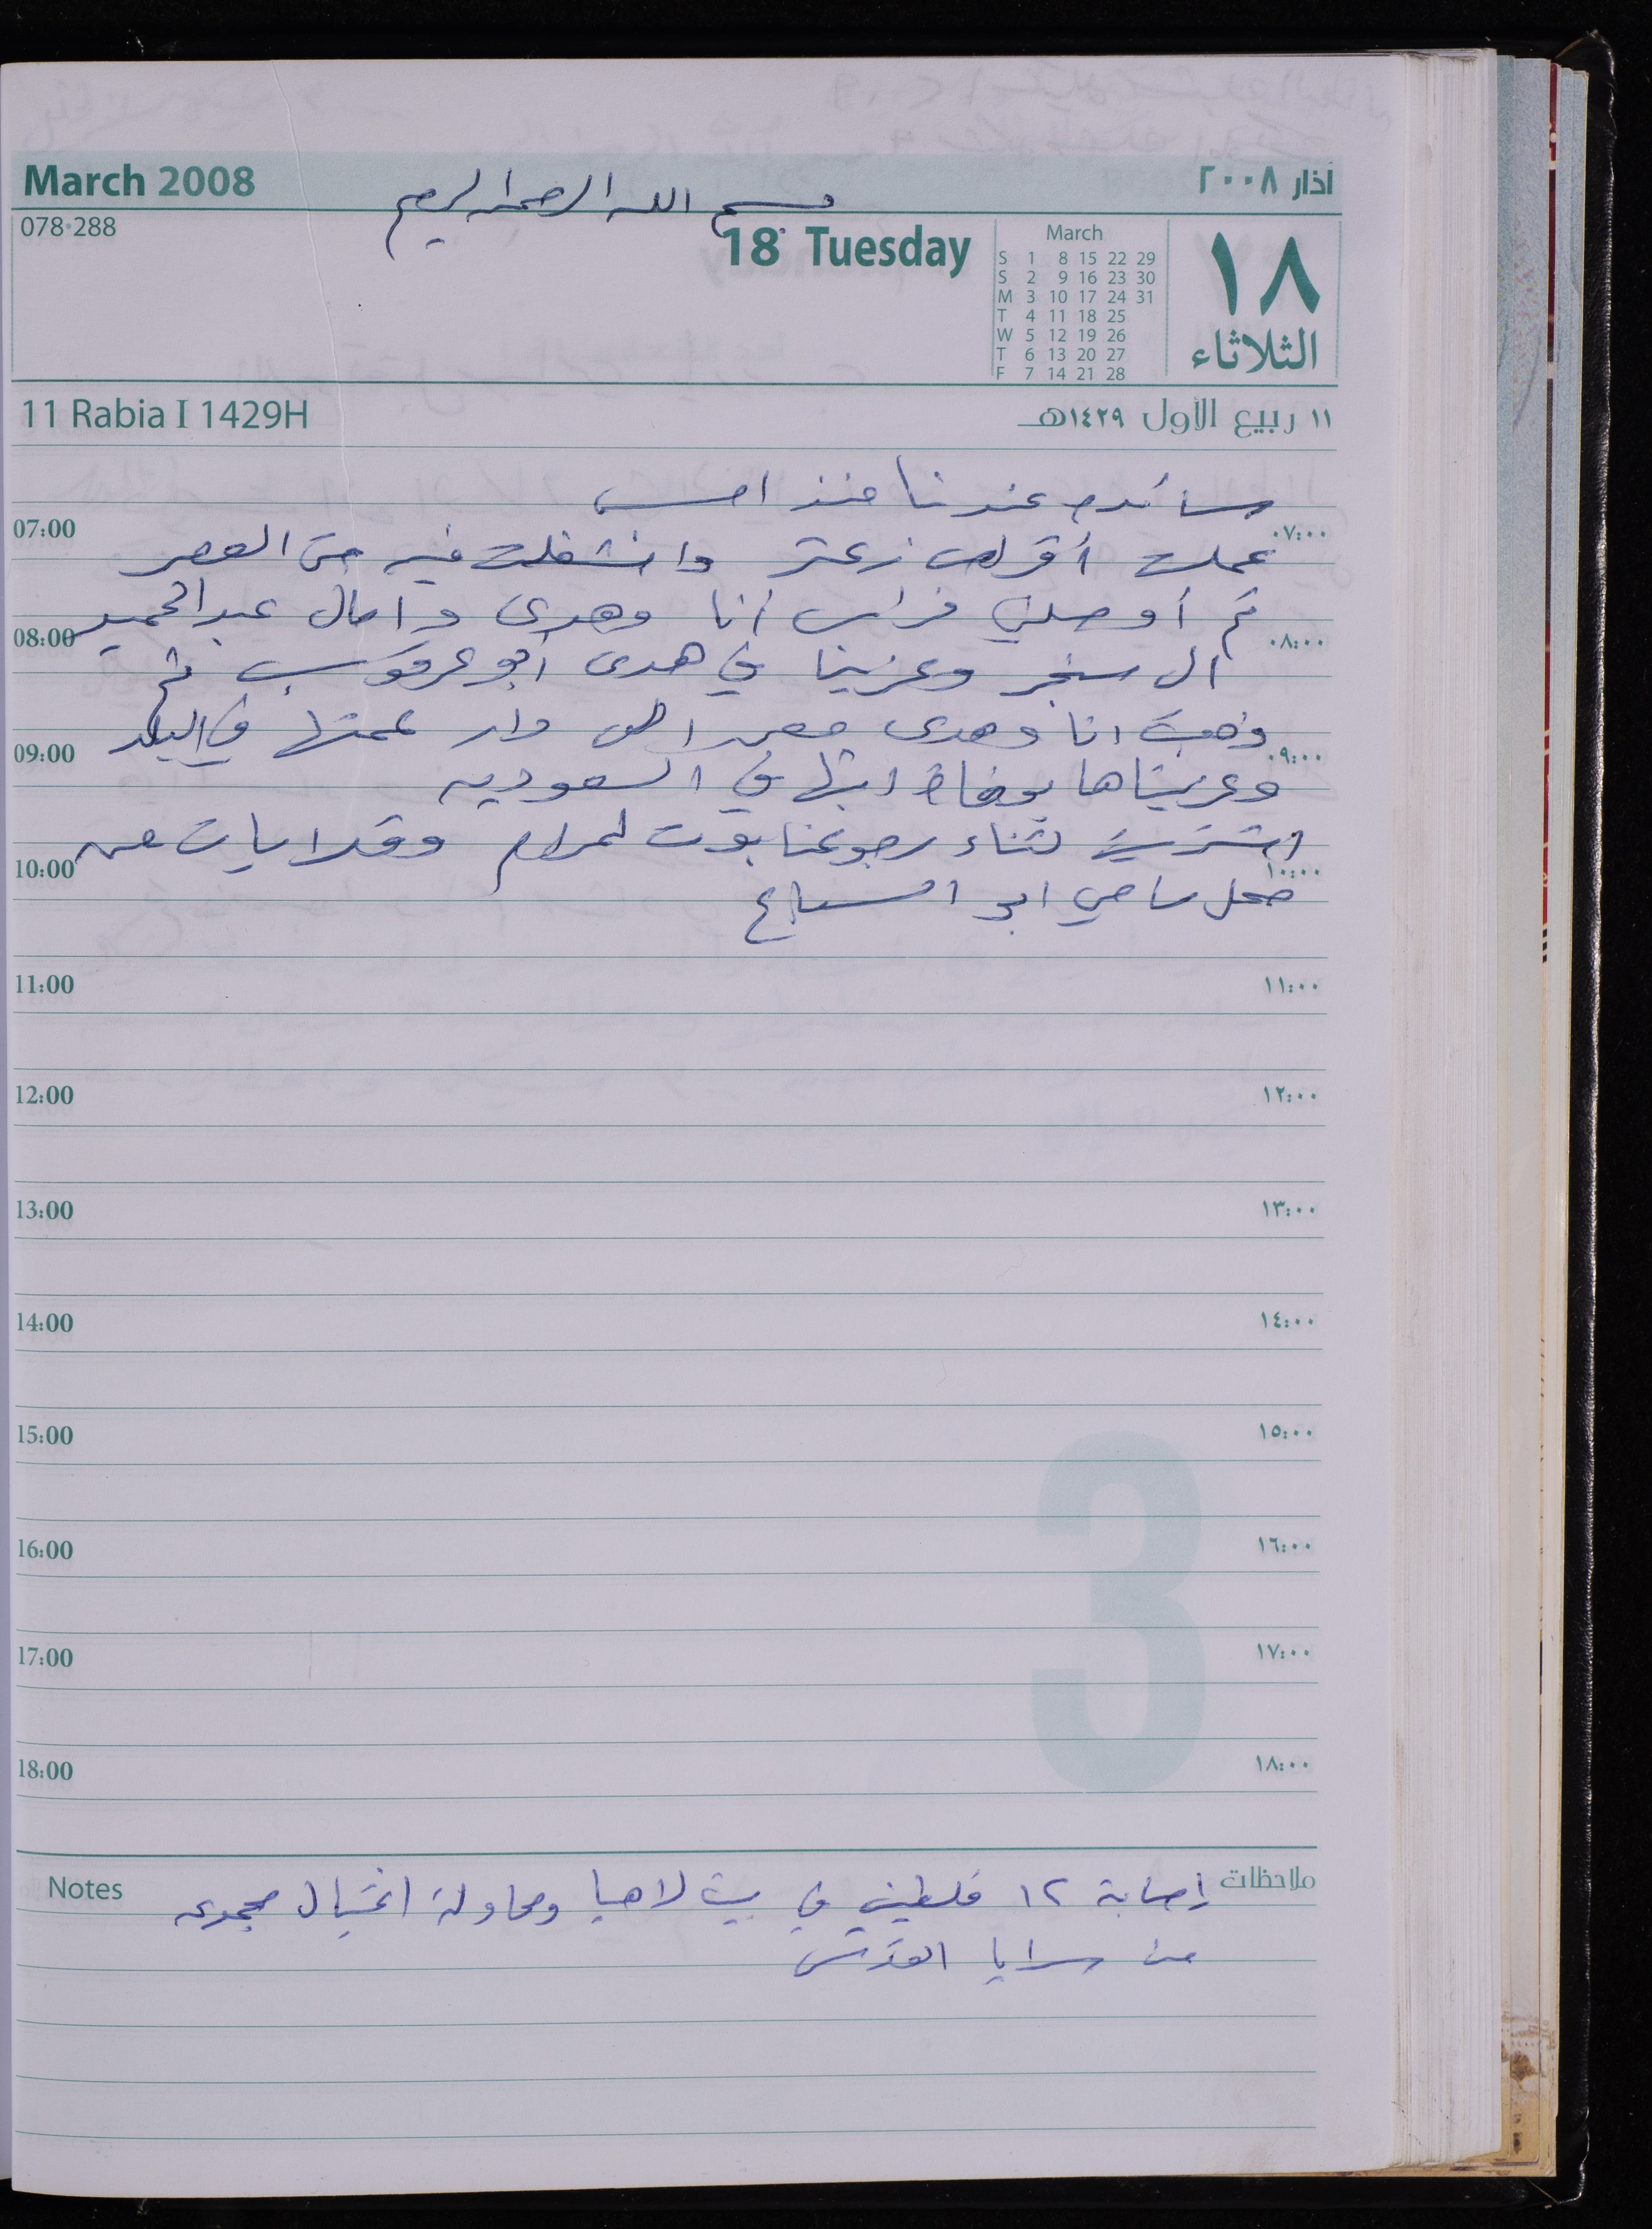 March 2008
آذار ٢٠٠٨
بسم الله الرحمن الرحيم
078-288
18 Tuesday
March
S 1 8 15 22 29
S 2 9 16 23 30
M 3 10 17 24 31
T 4 11 18 25
W 5 12 19 26
T 6 13 20 27
F 7 14 21 28
١٨
الثلاثاء
11 Rabia I 1429H
١١ ربيع الأول ١٤٢٩هـ
عندنا منذ امس
07:00 ٠٧:٠٠
عملت أقراص زعتر وانشغلت فيه حتى العصر
ثم أوصلني فراس أنا وهدى و امال عبد الحميد
08:00 ٠٨:٠٠
ال سنجر وعزينا في هدى أبو عرقوب ثم
ذهبت انا وهدى دار عمتها في البلد
09:00 ٠٩:٠٠
وعزيناها بوفاة ابنها في السعوديه
اشتريت اثناء رجوعنا بوت لمرام
10:00 ١٠:٠٠
محل سامي ابو السباع
11:00 ١١:٠٠
12:00 ١٢:٠٠
13:00 ١٣:٠٠
14:00 ١٤:٠٠
15:00 ١٥:٠٠
16:00 ١٦:٠٠
17:00 ١٧:٠٠
18:00 ١٨:٠٠
3
Notes
ملاحظات
إصابة ١٢ فلسطيني في بيت لاهيا ومحاولة اغتيال مجموعه
من سرايا القدس